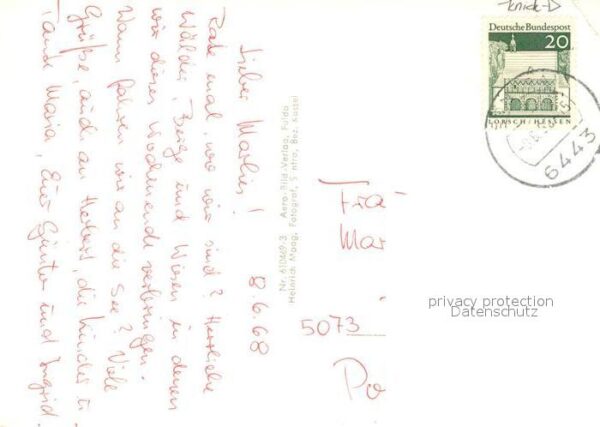 Knick-D
Deutsche Bundespost
20
LORSCH/HESSEN
6443
8.6.68
Lieber Markus!
Rate mal, wo wir sind? Herrliche
Wälder, Berge und Wiesen in denen
wir dieses Wochenende verbringen.
Wann fahren wir an die See? Viele
Grüße, auch an Herbert, die Kinder u.
Tante Maria, Eure Günter und Ingrid.
Nr. 610469/3 Aero-Bild-Verlag, Fulda
Heinrich Maag, Fotograf, Sontra, Bez. Kassel
Mar
5073
privacy protection
Datenschutz
Po